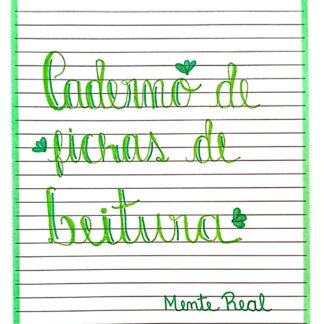 Caderno de
fichas de
Leitura
Mente Real